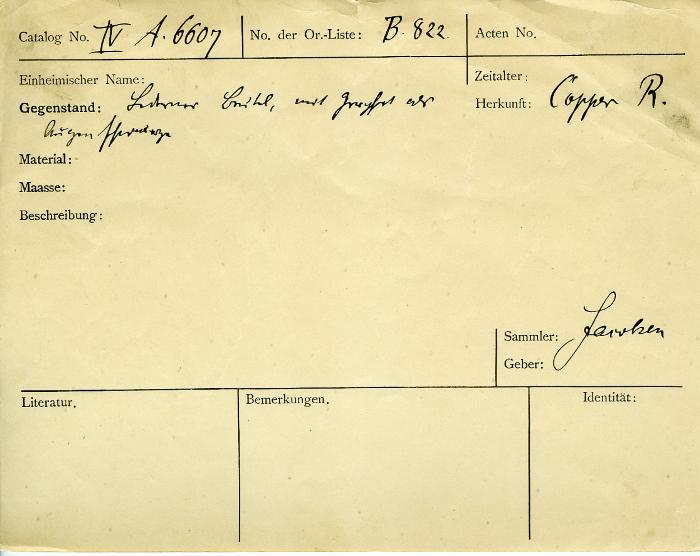 Catalog No. IV A. 6607 No. der Or.-Liste: B. 822. Acten No.
Einheimischer Name: Zeitalter:
Gegenstand: Lederner Beutel, mit Graphit als Herkunft: Copper R.
Augenschwärze
Material:
Maasse:
Beschreibung:
Sammler: Jacobsen
Geber:
Literatur. Bemerkungen. Identität: